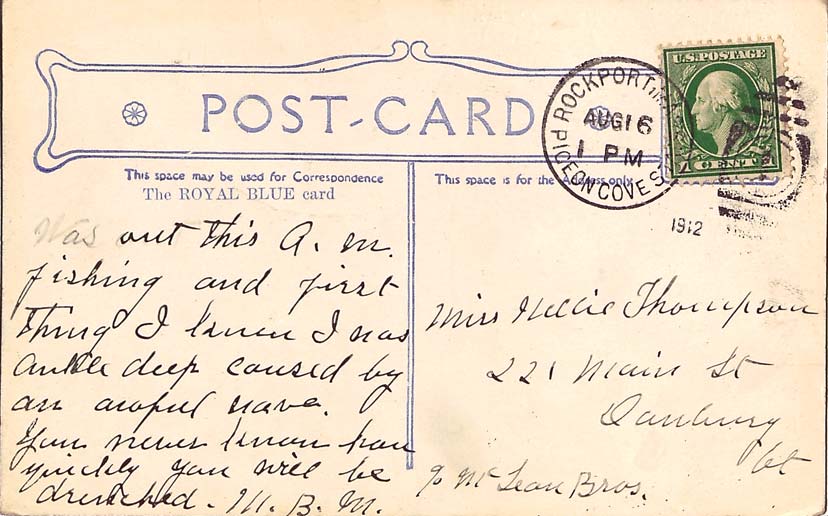 POST-CARD
This space may be used for Correspondence
The ROYAL BLUE card
Was out this A. M.
fishing and first
thing I knew I was
ankle deep caused by
an awful wave.
You never know how
quickly you will be
drenched. M. B. M.
This space is for the Address only
ROCKPORT
AUG 16
1 PM
PIGEON COVE STA
1912
U.S. POSTAGE
1 CENT 1
Miss Nellie Thompson
221 Main St
Danbury
Ct
% McLean Bros.